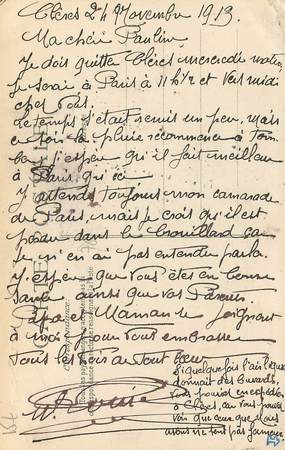 Clères 24 Novembre 1913.
Ma chère Pauline
Je dois quitter Clères mercredi matin,
je serai à Paris à 11 h 1/2 et vers midi
chez vous.
Le temps s'était remis un peu, mais
ce soir la pluie recommence à tom
ber j'espère qu'il fait meilleur
à Paris qu'ici
J'attends toujours mon camarade
de Paris, mais je crois qu'il est
perdu dans le brouillard car
je n'en ai pas entendu parler
J'espère que vous êtes en bonne
santé ainsi que vos Parents
Papa et Maman se joignent
à moi pour vous embrasser
tous les trois de tout cœur
Si quelquefois l'air
donnait des
à Clères, car vous
que ceux que